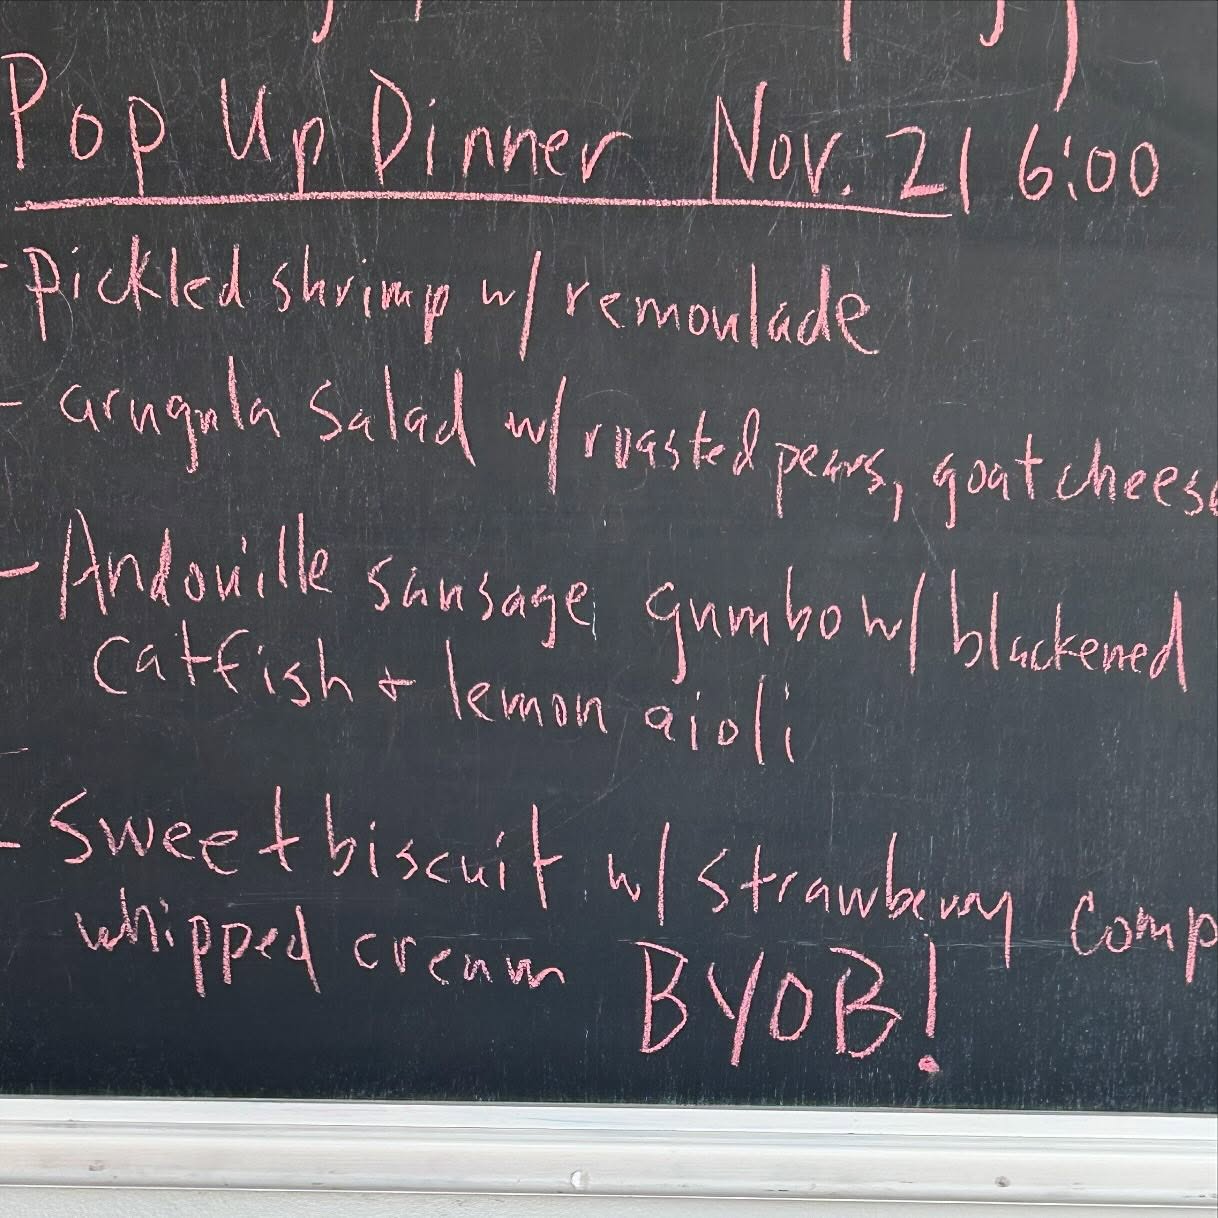 Pop Up Dinner Nov. 21 6:00
- pickled shrimp w/ remoulade
- arugula salad w/ roasted pears, goat cheese
- Andouille sausage gumbo w/ blackened
catfish + lemon aioli
- Sweet biscuit w/ strawberry comp
whipped cream BYOB!